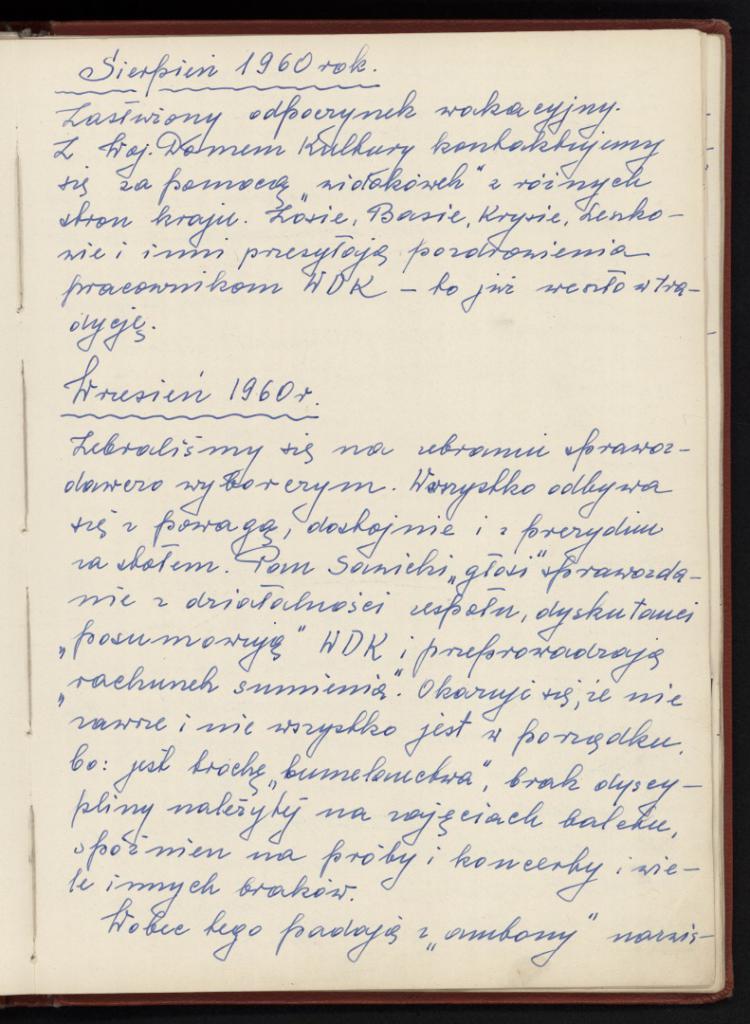 Sierpień 1960 rok.
Zasłużony odpoczynek wakacyjny.
Z Woj. Domem Kultury kontaktujemy
się za pomocą „widokówek" z różnych
stron kraju. Zosie, Basie, Krysie, Leszko-
wie i inni przesyłają pozdrowienia
pracownikom WDK – to już weszło w tra-
dycję.
Wrzesień 1960 r.
Zebraliśmy się na zebraniu sprawoz-
dawczo wyborczym. Wszystko odbywa
się z powagą, dostojnie i z prezydium
za stołem. Pan Sawicki „głosi" sprawozda-
nie z działalności zespołu, dyskutanci
„posumowują" WDK i przeprowadzają
„rachunek sumienia". Okazuje się, że nie
zawsze i nie wszystko jest w porządku,
bo: jest trochę „bumelanctwa", brak dyscy-
pliny należytej na zajęciach baletu,
spóźnień na próby i koncerty i wie-
le innych braków.
Wobec tego padają z „ambony" nazwis-